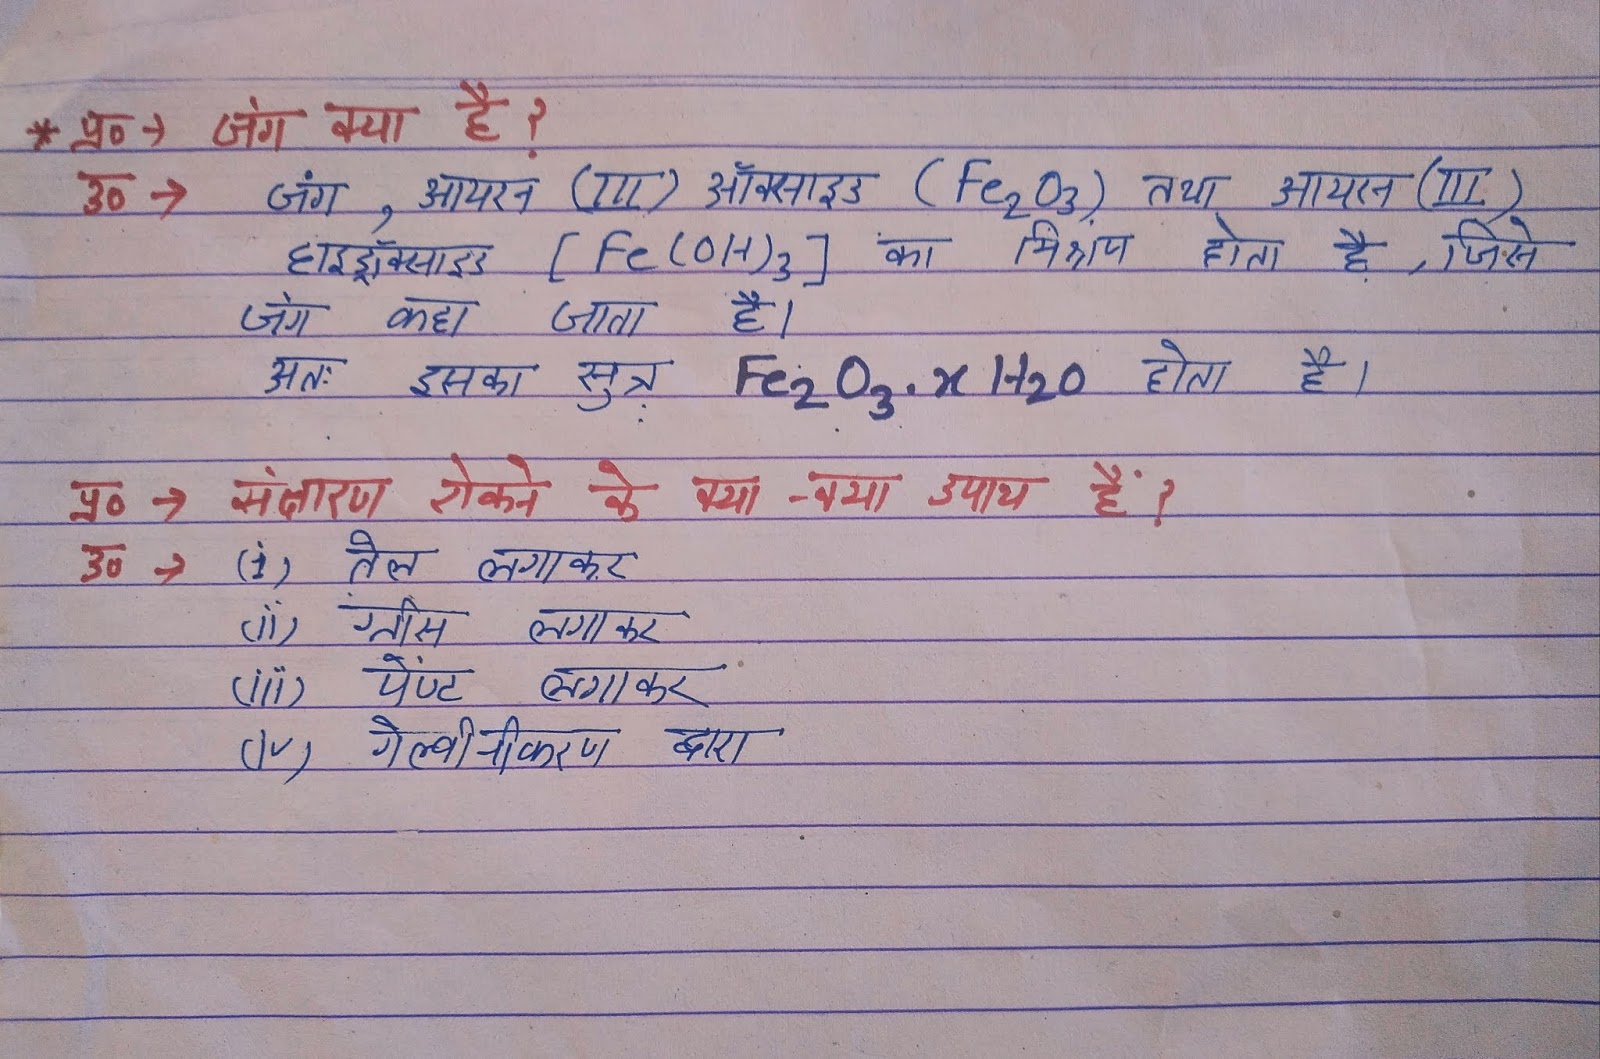 * प्र० → जंग क्या है ?
उ० → जंग , आयरन (III) ऑक्साइड (Fe₂O₃) तथा आयरन (III)
हाइड्रॉक्साइड [Fe(OH)₃] का मिश्रण होता है , जिसे
जंग कहा जाता है।
अतः इसका सुत्र Fe₂O₃.xH₂O होता है।
प्र० → संक्षारण रोकने के क्या-क्या उपाय हैं ?
उ० → (i) तेल लगाकर
(ii) ग्रीस लगाकर
(iii) पेंण्ट लगाकर
(iv) गेल्वीनीकरण द्वारा